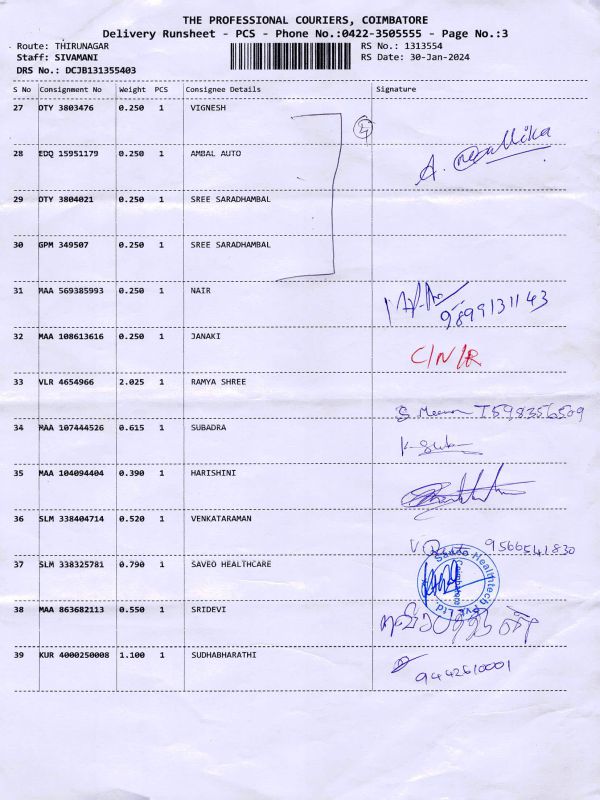 THE PROFESSIONAL COURIERS, COIMBATORE
Delivery Runsheet - PCS - Phone No.:0422-3505555 - Page No.:3
Route: THIRUNAGAR RS No.: 1313554
Staff: SIVAMANI RS Date: 30-Jan-2024
DRS No.: DCJB131355403
S No Consignment No Weight PCS Consignee Details Signature
27 DTY 3803476 0.250 1 VIGNESH
28 EDQ 15951179 0.250 1 AMBAL AUTO
A. Mallika
29 DTY 3804021 0.250 1 SREE SARADHAMBAL
30 GPM 349507 0.250 1 SREE SARADHAMBAL
31 MAA 569385993 0.250 1 NAIR
9899131143
32 MAA 108613616 0.250 1 JANAKI
C/N/R
33 VLR 4654966 2.025 1 RAMYA SHREE
S. Meena 7598356509
34 MAA 107444526 0.615 1 SUBADRA
35 MAA 104094404 0.390 1 HARISHINI
36 SLM 338404714 0.520 1 VENKATARAMAN
9566541830
37 SLM 338325781 0.790 1 SAVEO HEALTHCARE
Healthtech Pvt. Ltd.
38 MAA 863682113 0.550 1 SRIDEVI
39 KUR 4000250008 1.100 1 SUDHABHARATHI
9442610001